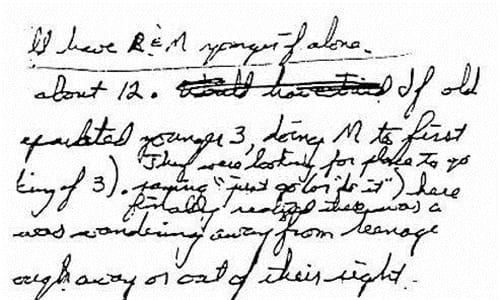 ld have R & M younger if alone.
about 12. If old
eparated younger 3, doing M to first
They were looking for place to go
king of 3). saying "just go (or "do it") here
finally realized there was a
was wandering away from teenage
ough away or out of their sight.